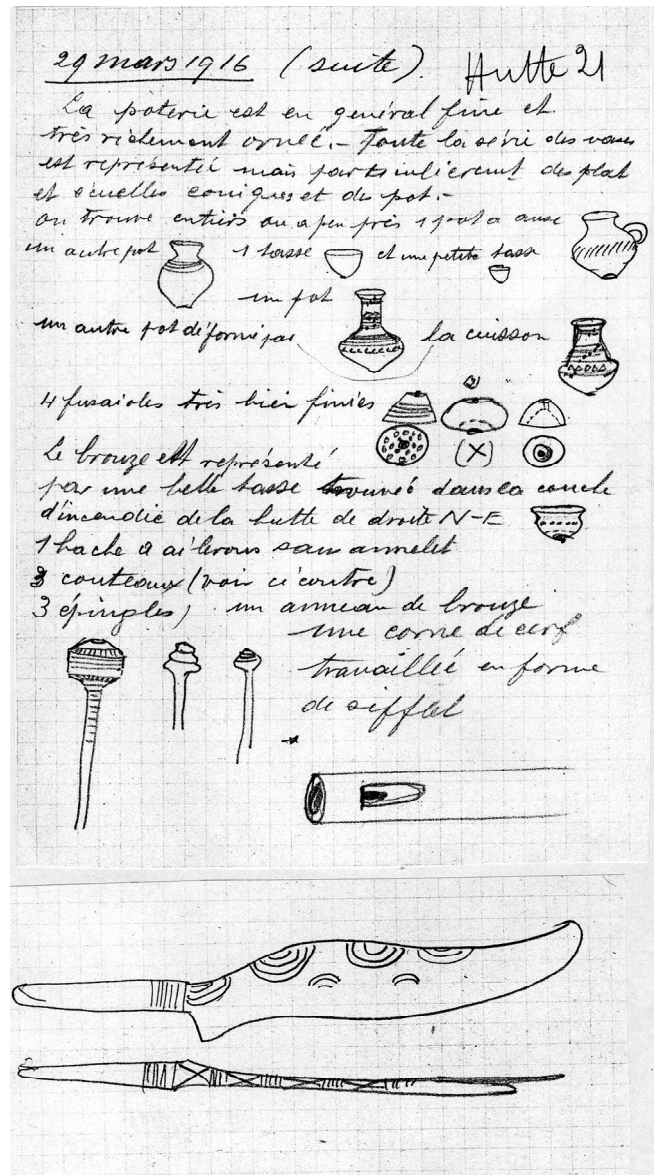 29 mars 1916 (suite). Hutte 21
La poterie est en général fine et
très richement ornée. - Toute la série des vases
est représentée mais particulièrement des plat
et écuelles coniques et des pot. -
on trouve entiers ou a peu près 1 pot a anse
un autre pot 1 tasse et une petite tasse
un pot
un autre pot déformé par la cuisson
4 fusaioles très bien finies
Le bronze est représenté
par une belle tasse trouvée dans la couche
d'incendie de la hutte de droite N-E
1 hache a ailerons sans annelet
3 couteaux (voir ci contre)
3 épingles, un anneau de bronze
une corne de cerf
travaillée en forme
de sifflet